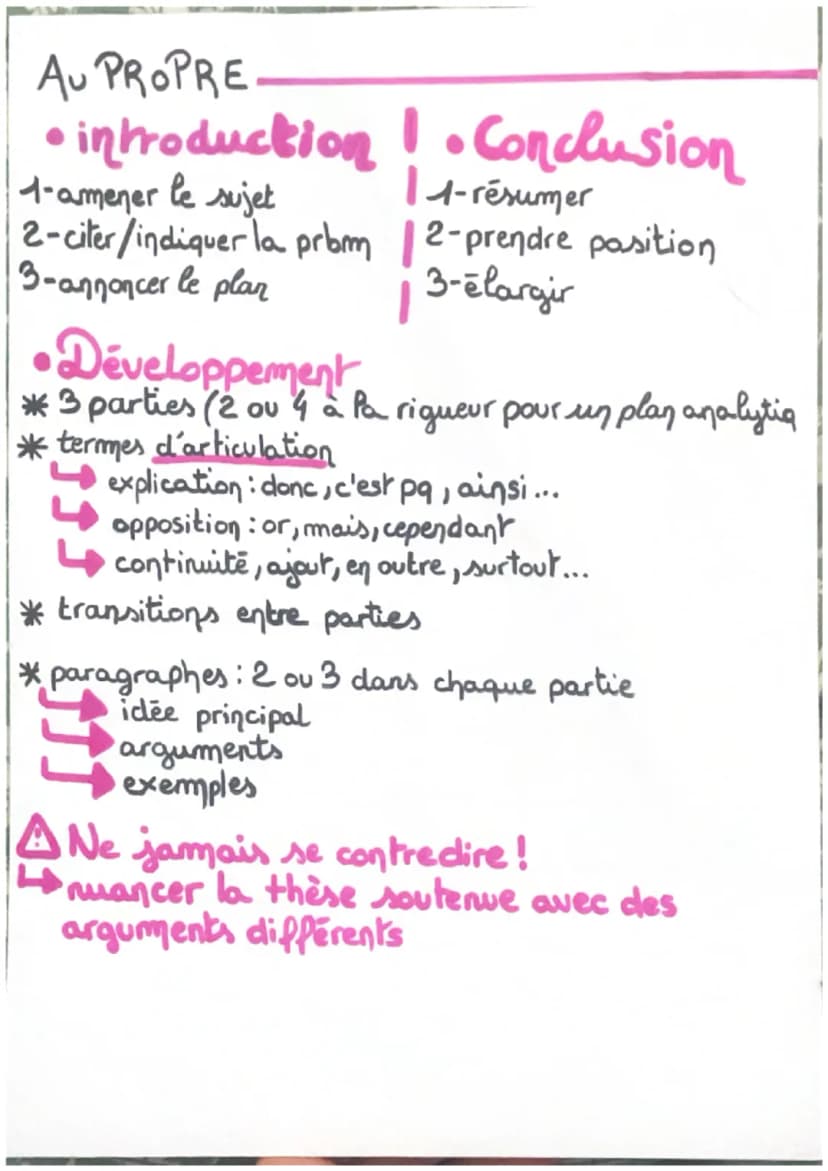 Au PROPRE
• introduction
1-amener le sujet
2-citer/indiquer la prbm
3-annoncer le plan
• Conclusion
1-résumer
2-prendre position
3-élargir
• Développement
* 3 parties (2 ou 4 à la rigueur pour un plan analytiq
* termes d'articulation
↳ explication : donc, c'est pq, ainsi...
↳ opposition : or, mais, cependant
↳ continuité, ajout, en outre, surtout...
* transitions entre parties
* paragraphes : 2 ou 3 dans chaque partie
↳ idée principal
↳ arguments
↳ exemples
⚠ Ne jamais se contredire !
↳ nuancer la thèse soutenue avec des
arguments différents